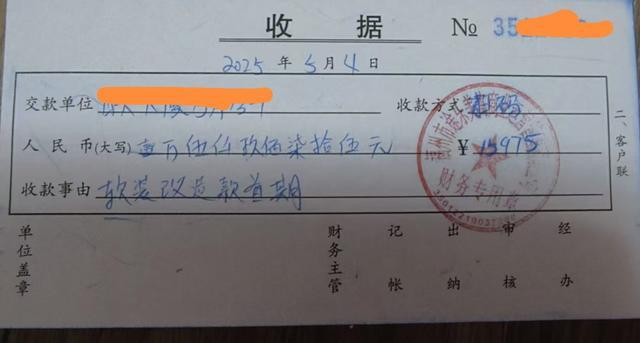 收据 № 35
2025年5月4日
交款单位 收款方式 扫码
人民币(大写) 壹万伍仟玖佰柒拾伍元 ¥15975
收款事由 软装改造款首期
二、客户联
单位盖章 财务主管 记帐 出纳 审核 经办
财务专用章